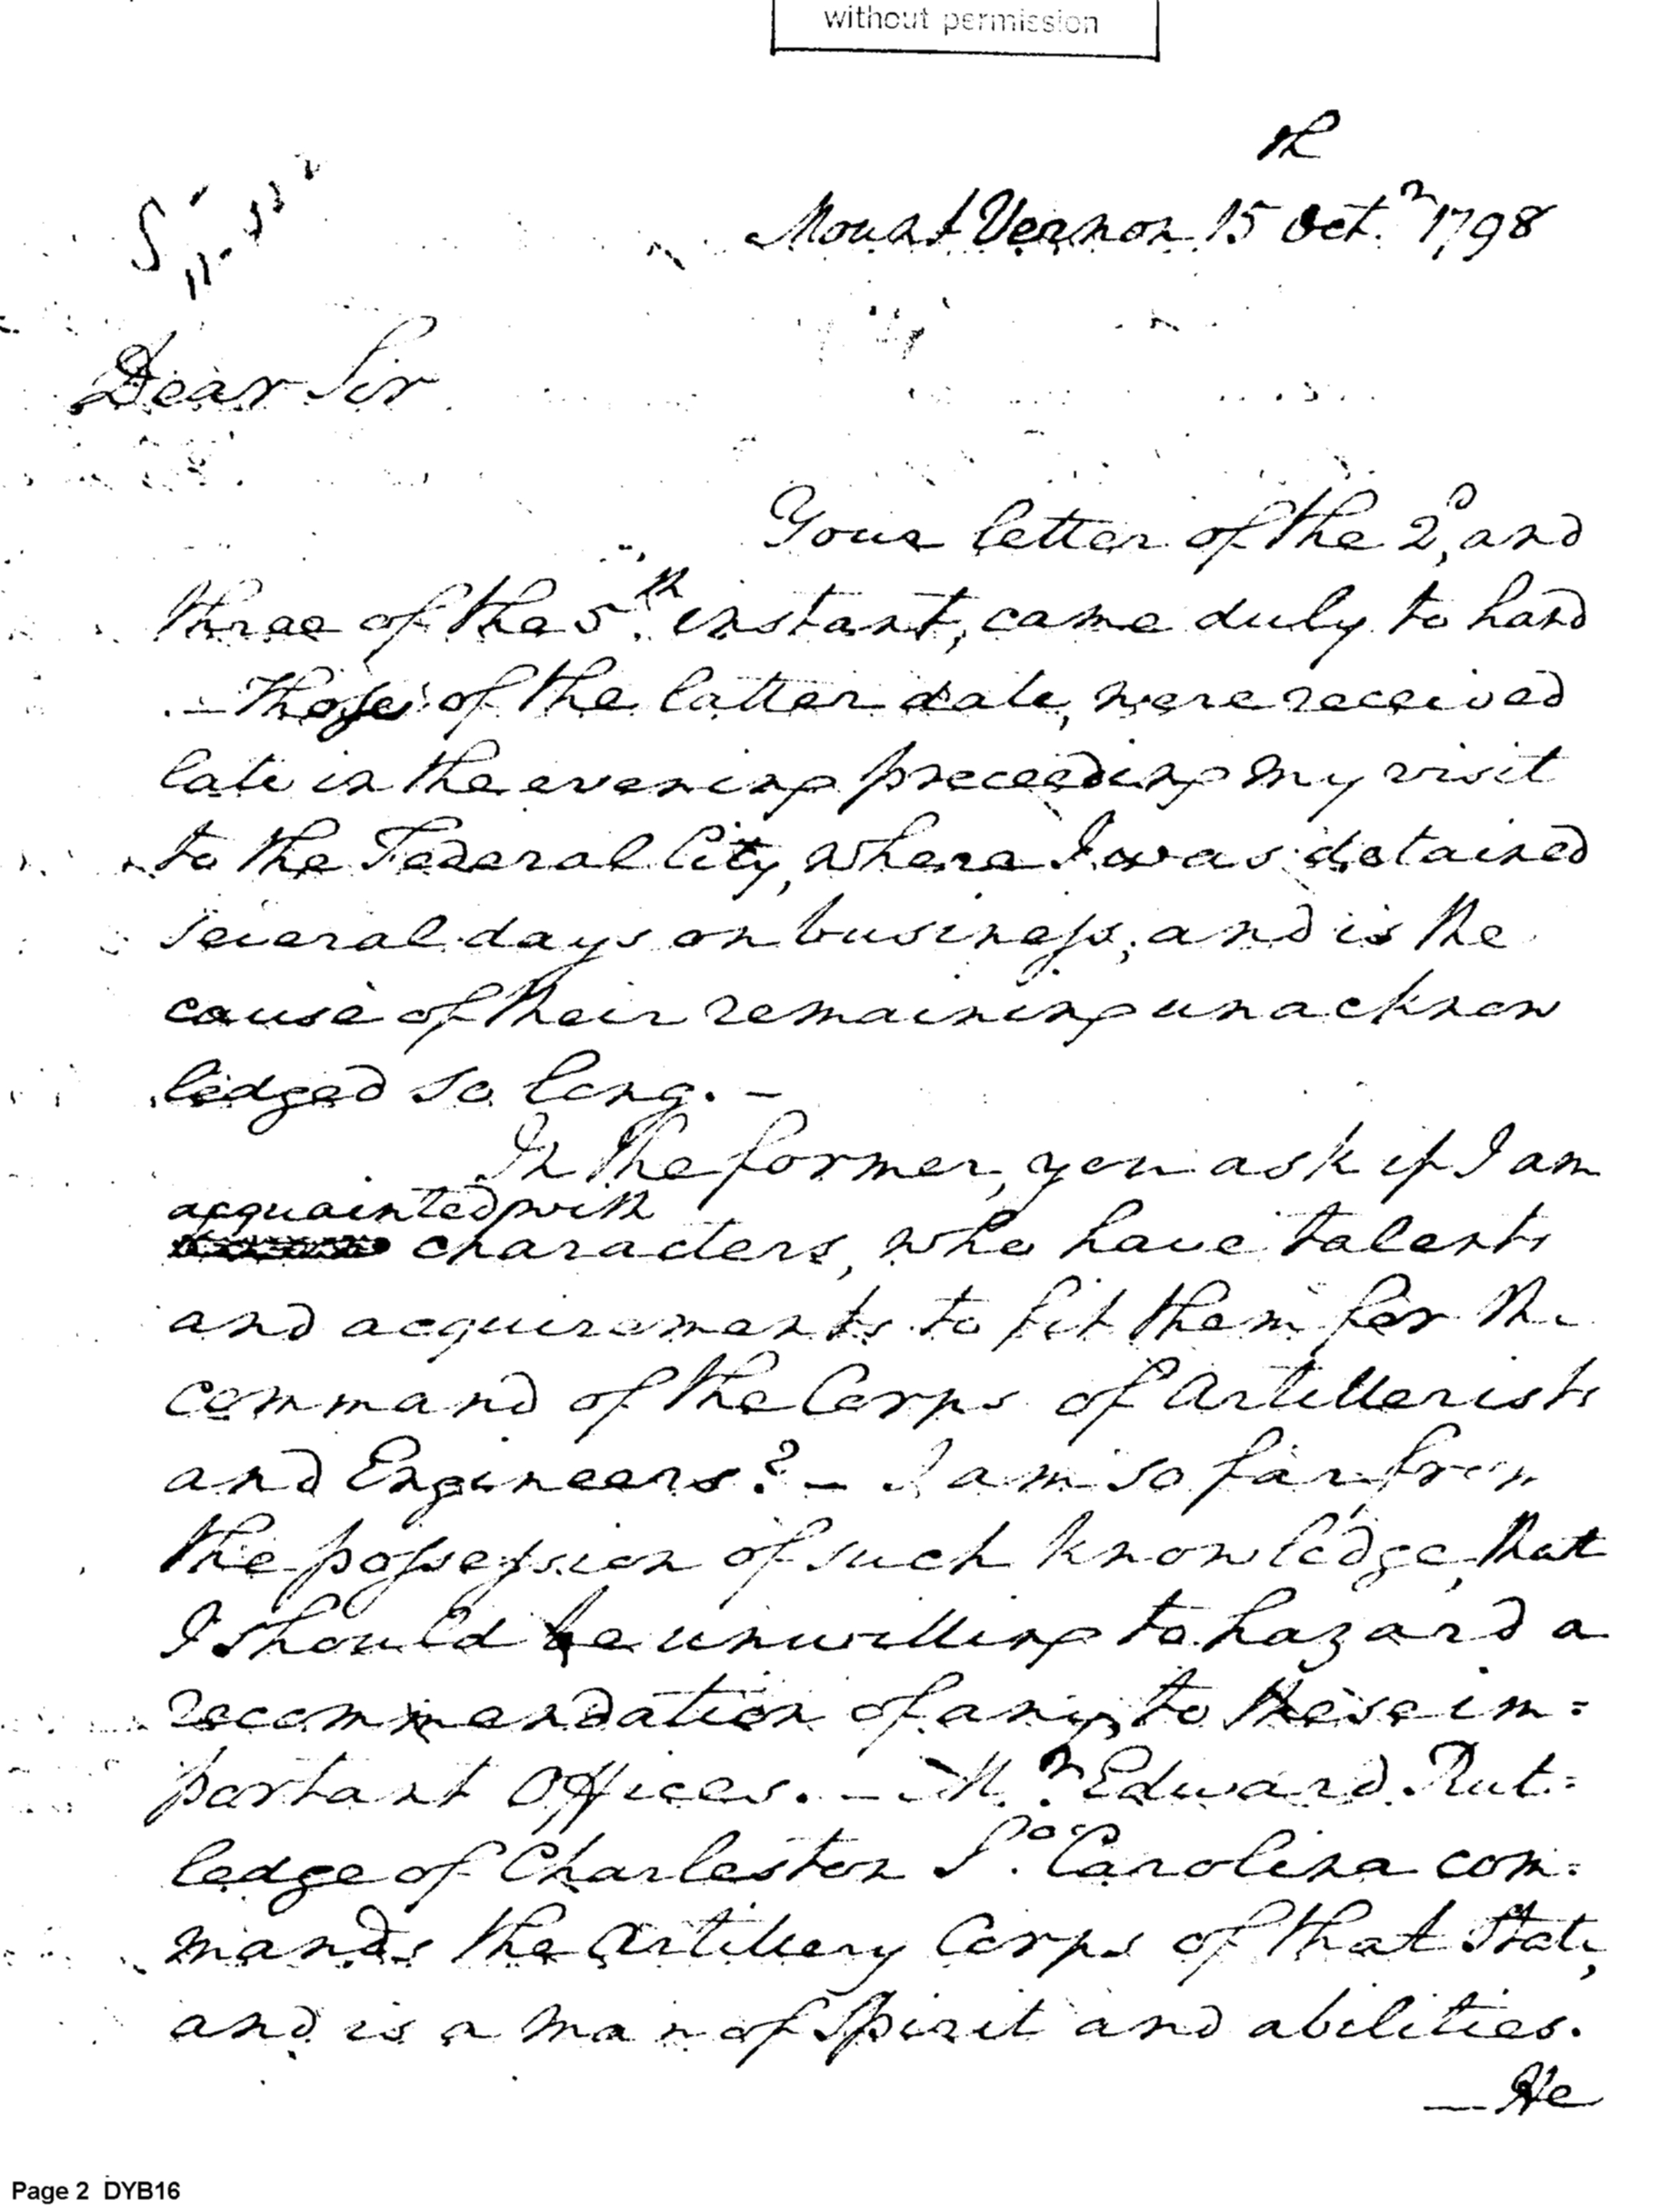 without permission
Mount Vernon 15th Octr 1798
Dear Sir
Your letter of the 2d, and
three of the 5th instant, came duly to hand
—Those of the latter date, were received
late in the evening preceeding my visit
to the Federal City, where I was detained
several days on business; and is the
cause of their remaining unacknow
ledged so long.—
In the former, you ask if I am
acquainted with
characters, who have talents
and acquirements to fit them for the
command of the Corps of Artillerists
and Engineers?— I am so far from
the possession of such knowledge, that
I should be unwilling to hazard a
recommendation of any, to these im=
portant Offices.—Mr. Edward Rut=
ledge of Charleston So. Carolina com=
mands the Artillery Corps of that State,
and is a man of Spirit and abilities.
—He
Page 2 DYB16